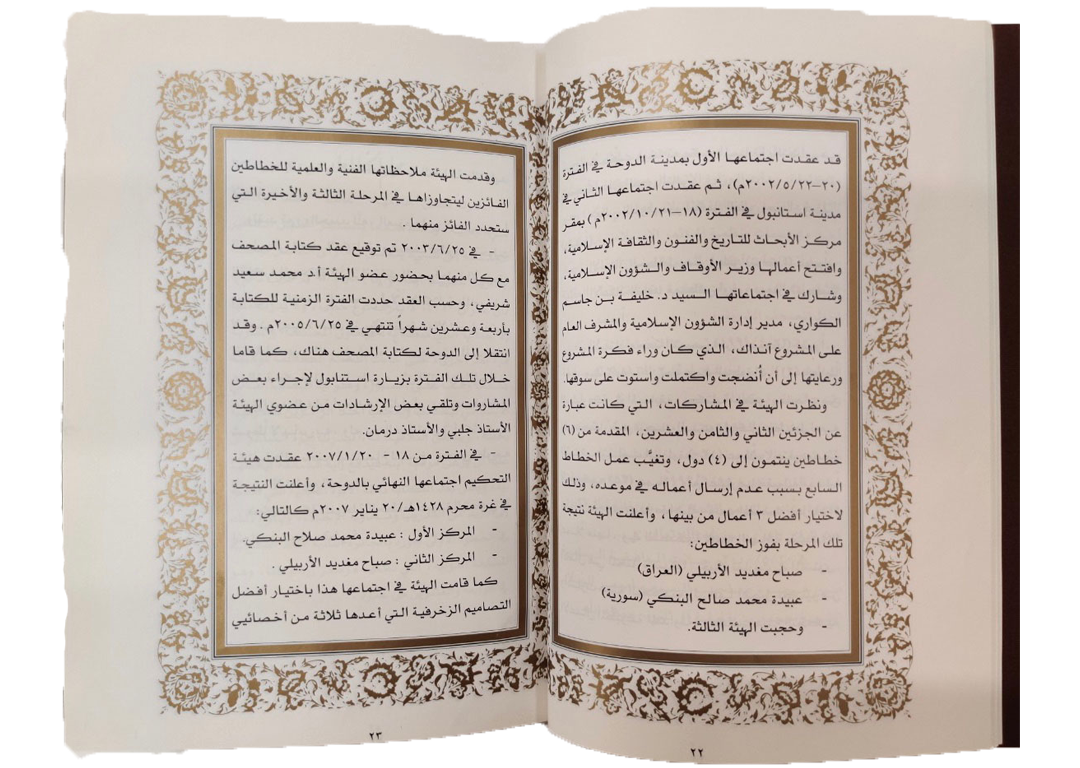 قد عقدت اجتماعها الأول بمدينة الدوحة في الفترة
(٢٠-٢٠٠٢/٥/٢٢م)، ثم عقدت اجتماعها الثاني في
مدينة استانبول في الفترة (١٨-٢٠٠٢/١٠/٢١م) بمقر
مركز الأبحاث للتاريخ والفنون والثقافة الإسلامية،
وافتتح أعمالها وزير الأوقاف والشؤون الإسلامية،
وشارك في اجتماعاتها السيد د. خليفة بن جاسم
الكواري، مدير إدارة الشؤون الإسلامية والمشرف العام
على المشروع آنذاك، الذي كان وراء فكرة المشروع
ورعايتها إلى أن أُنضجت واكتملت واستوت على سوقها.
ونظرت الهيئة في المشاركات، التي كانت عبارة
عن الجزئين الثاني والثامن والعشرين، المقدمة من (٦)
خطاطين ينتمون إلى (٤) دول، وتغيَّب عمل الخطاط
السابع بسبب عدم إرسال أعماله في موعده، وذلك
لاختيار أفضل ٣ أعمال من بينها، وأعلنت الهيئة نتيجة
تلك المرحلة بفوز الخطاطين:
- صباح مغديد الأربيلي (العراق)
- عبيدة محمد صالح البنكي (سورية)
- وحجبت الهيئة الثالثة.
٢٢
وقدمت الهيئة ملاحظاتها الفنية والعلمية للخطاطين
الفائزين ليتجاوزاها في المرحلة الثالثة والأخيرة التي
ستحدد الفائز منهما .
- في ٢٠٠٣/٦/٢٥ تم توقيع عقد كتابة المصحف
مع كل منهما بحضور عضو الهيئة أ.د محمد سعيد
شريفي، وحسب العقد حددت الفترة الزمنية للكتابة
بأربعة وعشرين شهراً تنتهي في ٢٠٠٥/٦/٢٥م . وقد
انتقلا إلى الدوحة لكتابة المصحف هناك، كما قاما
خلال تلك الفترة بزيارة استنابول لإجراء بعض
المشاروات وتلقي بعض الإرشادات من عضوي الهيئة
الأستاذ جلبي والأستاذ درمان.
- في الفترة من ١٨ - ٢٠٠٧/١/٢٠ عقدت هيئة
التحكيم اجتماعها النهائي بالدوحة، وأعلنت النتيجة
في غرة محرم ١٤٢٨هـ/٢٠ يناير ٢٠٠٧م كالتالي:
- المركز الأول : عبيدة محمد صلاح البنكي.
- المركز الثاني : صباح مغديد الأربيلي .
كما قامت الهيئة في اجتماعها هذا باختيار أفضل
التصاميم الزخرفية التي أعدها ثلاثة من أخصائيي
٢٣